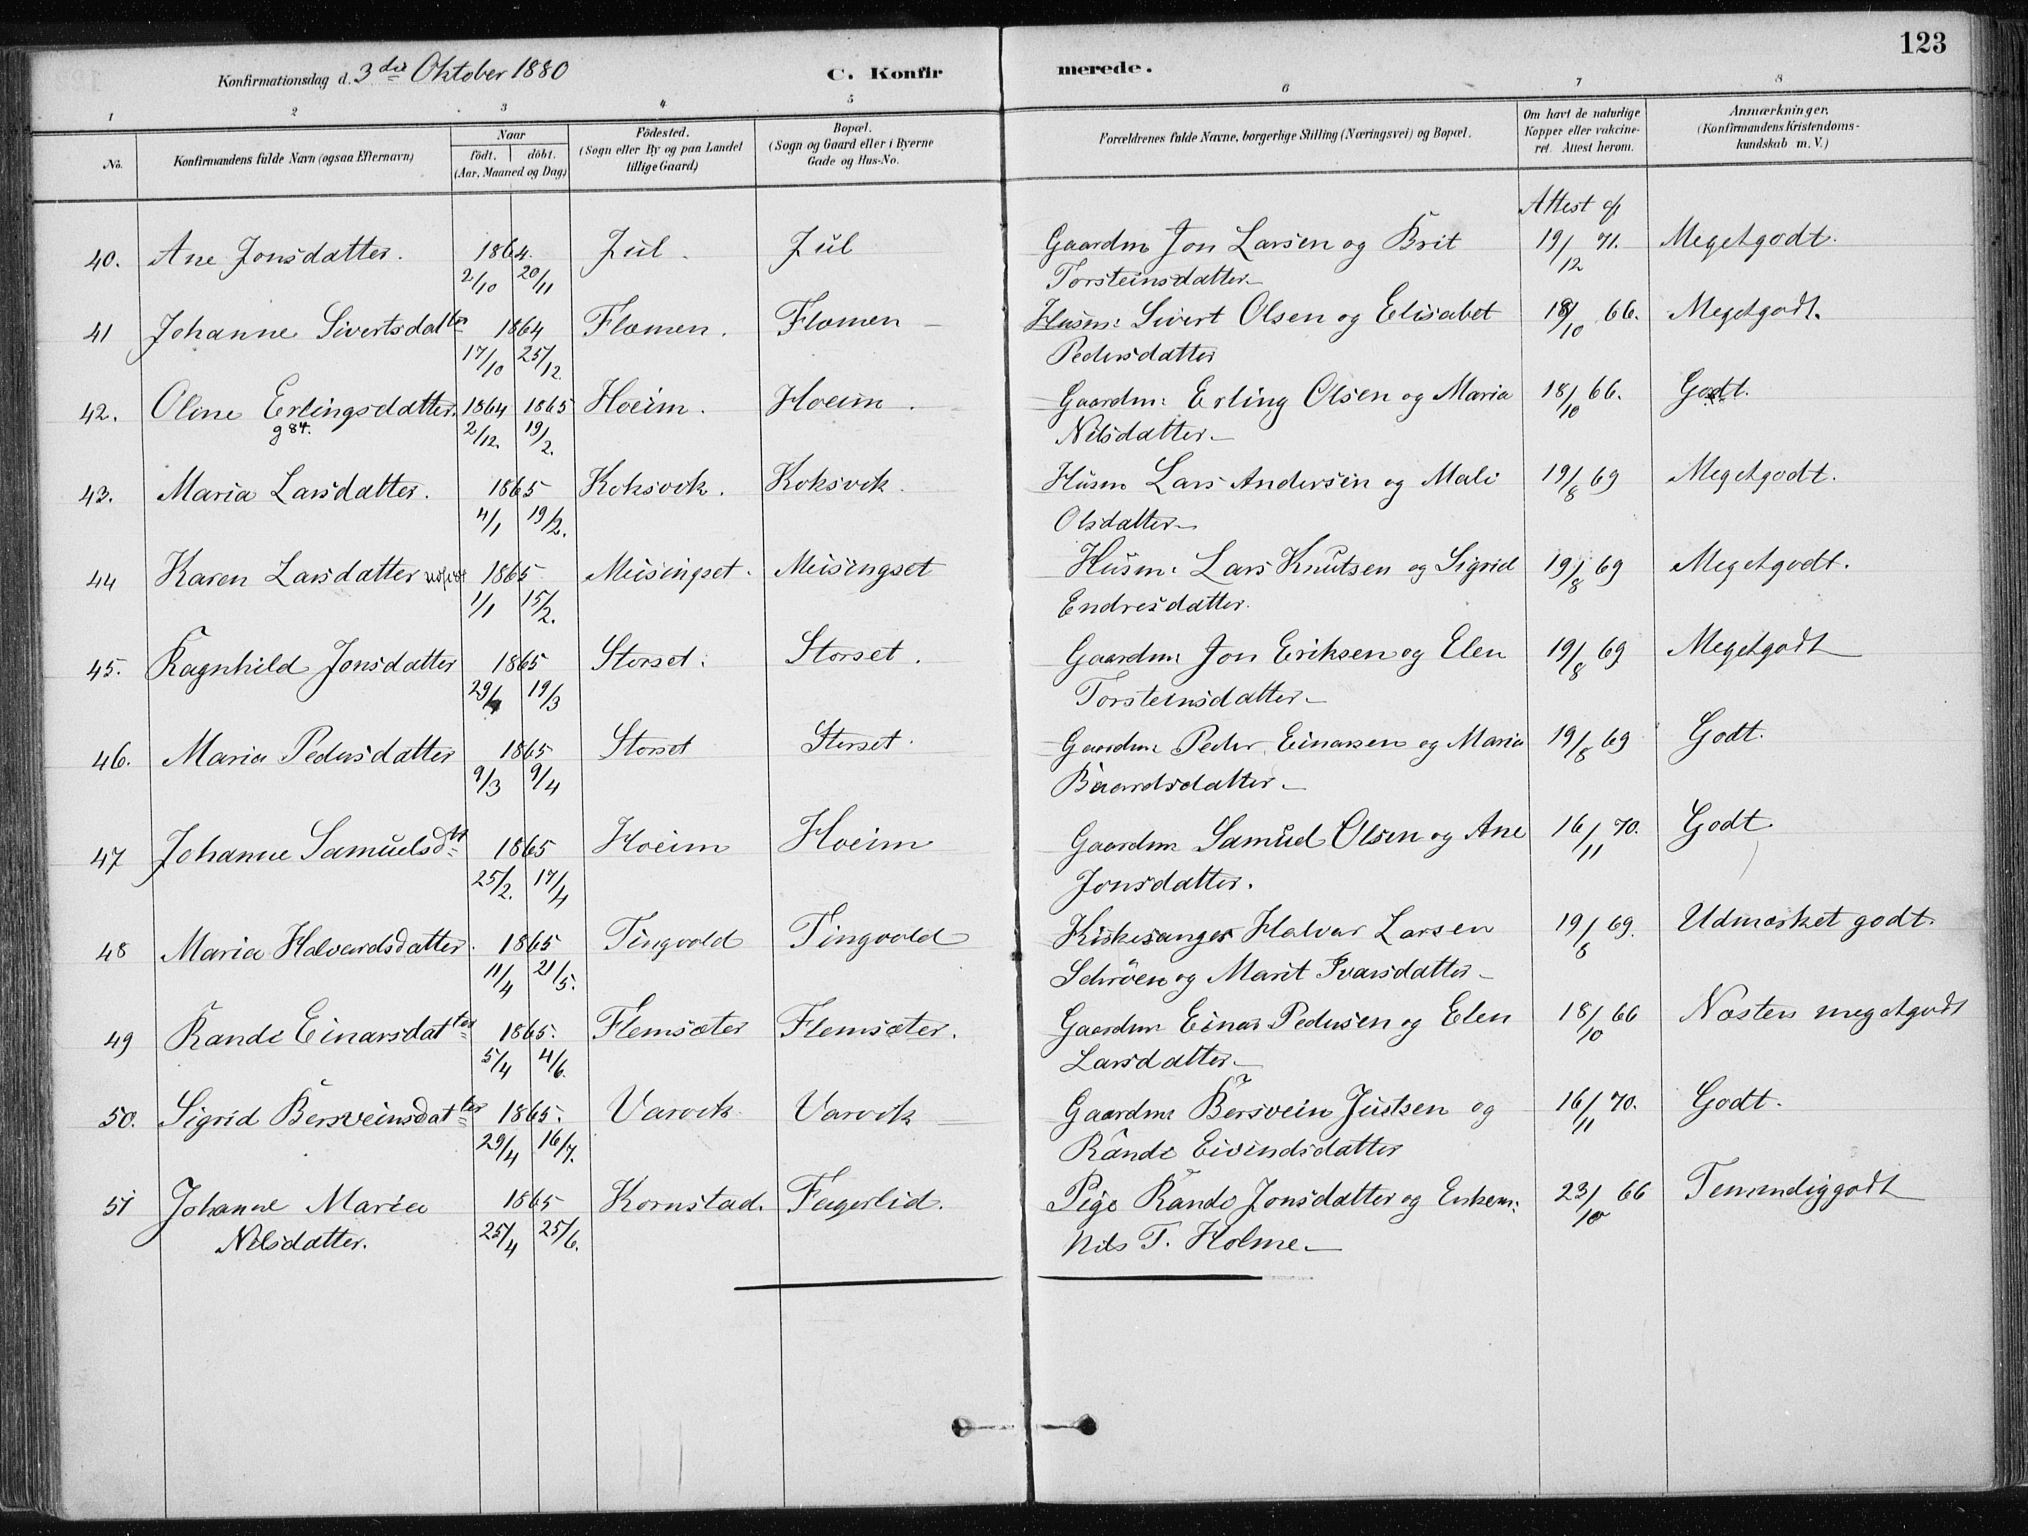 123
Konfirmationsdag d. 3die Oktober 1880
C. Konfirmerede.
1 2 3 4 5 6 7 8
No.
Konfirmandens fulde Navn (ogsaa Efternavn)
Naar
födt. döbt.
(Aar, Maaned og Dag)
Födested.
(Sogn eller By og paa Landet
tillige Gaard)
Bopæl.
(Sogn og Gaard eller i Byerne
Gade og Hus-No.
Forældrenes fulde Navne, borgerlige Stilling (Næringsvei) og Bopæl.
Om havt de naturlige
Kopper eller vakcine-
ret. Attest herom.
Anmærkninger,
(Konfirmandens Kristendoms-
kundskab m. V.)
Attest af
40. Ane Jonsdatter. 1864. Zül. Zül Gaardm Jon Larsen og Brit 19/12 71. Megetgodt.
2/10 20/11 Torsteinsdatter
41 Johanne Sivertsdatter 1864 Flemen. Flemen Husm: Sivert Olsen og Elisabet 18/10 66. Megetgodt.
17/10 25/12. Pedersdatter
42. Oline Erlingsdatter. 1864 1865 Hoeim. Hoeim. Gaardm: Erling Olsen og Maria 18/10 66. Godt.
g 84. 2/12. 19/2. Nilsdatter
43. Maria Larsdatter. 1865 Koksvik. Koksvik. Husm Lars Andersen og Mali 19/8 69 Megetgodt.
4/1 19/2. Olsdatter
44 Karen Larsdatter 1865 Meisingset. Meisingset Husm. Lars Knutsen og Sigrid 19/8 69 Megetgodt.
1/1 15/2. Endresdatter.
45. Ragnhild Jonsdatter 1865 Storset. Storset. Gaardm Jon Eriksen og Elen 19/8 69 Megetgodt
29/1 19/3 Torsteinsdatter
46. Maria Pedersdatter 1865 Storset Storset. Gaardm Peder Einarsen og Maria 19/8 69 Godt.
9/3 9/4 Baardsdatter
47 Johanne Samuelsdtr 1865 Hoeim Hoeim Gaardm Samuel Olsen og Ane 16/11 70. Godt
25/2. 17/4 Jonsdatter.
48 Maria Halvardsdatter. 1865 Tingvold Tingvold Kirkesanger Halvar Larsen 19/8 69. Udmærket godt.
11/4 21/5. Schröen og Marit Ivarsdatter
49 Randi Einarsdatter 1865. Flemsæter Flemsæter. Gaardm Einar Pedersen og Elen 18/10 66 Næsten megetgodt
5/4 4/6. Larsdatter
50. Sigrid Bersveinsdatter 1865. Varvik Varvik Gaardm Bersvein Justsen og 16/11 70. Godt.
29/4 16/7. Randi Eivindsdatter
51 Johanne Maria 1865 Kornstad. Fagerlid. Pige Randi Jonsdatter og Enkem: 23/10 66 Temmeliggodt
Nilsdatter. 25/4 25/6. Nils T. Holme